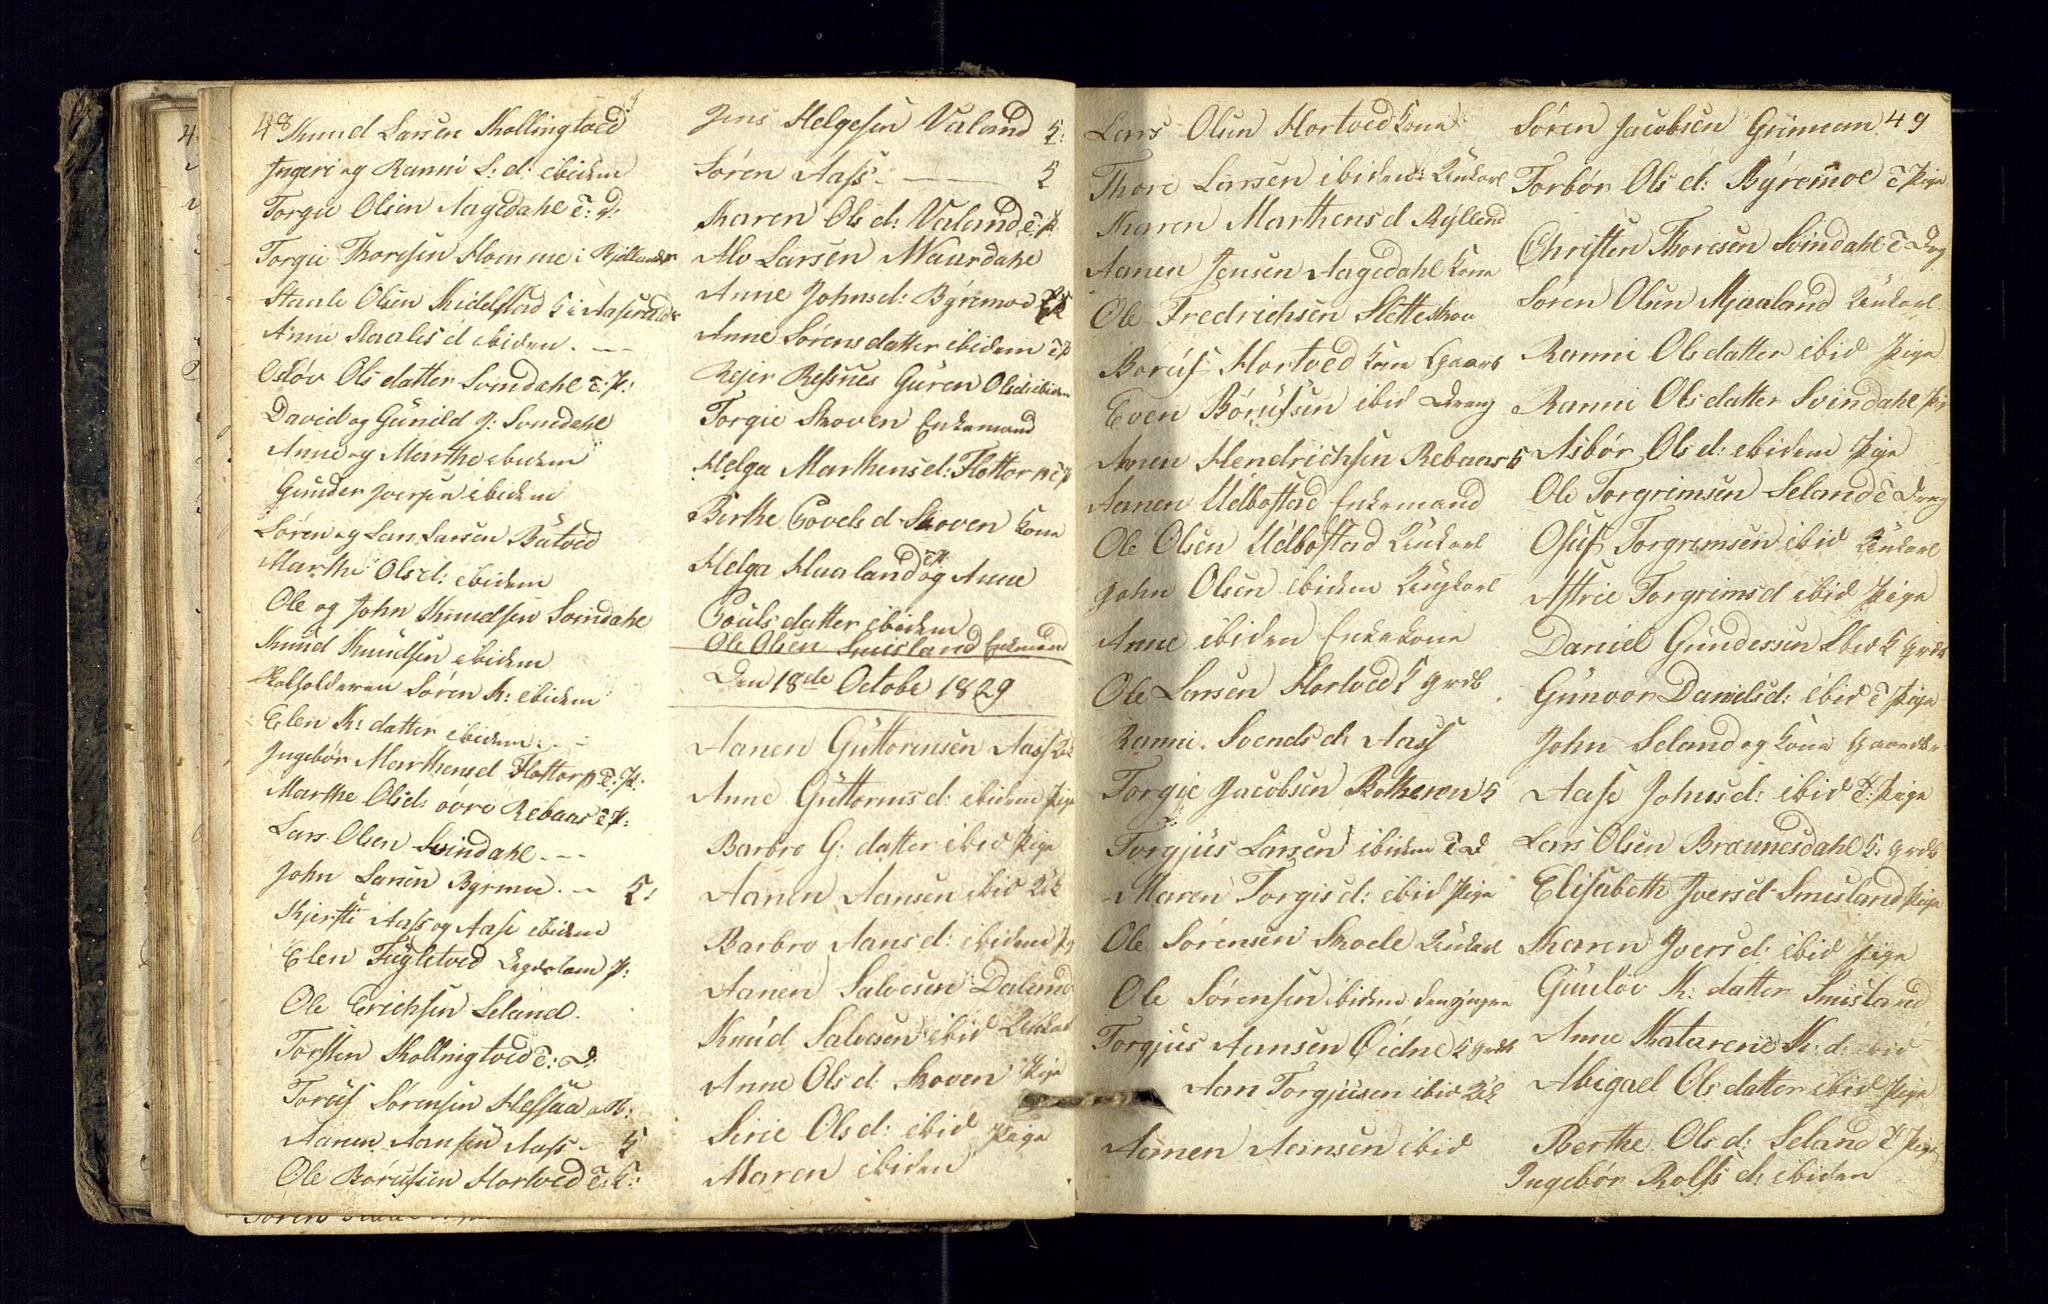 48
Knud Larsen Skollingtved
Ingeri og Ranni L: d: ibidem
Torgie Olsen Aagedahl T: D:
Torgie Thoresen Homme i
Staale Olsen K i Aaserald
Anne Staalis d ibidem. —
Osløv Olsdatter Svindahl T: P:
David og Günild J: Svindahl
Anne og Marthe ibidem
Günder Joersen ibidem
Søren og Lars Larsen Bütved
Marthe Olsd: ibidem
Ole og John Knudsen Svindahl
Knüd Knüdsen ibidem
Søren K: ibidem
Elen K: datter ibidem. —
Ingebør Marthensd Flottorp T: P:
Marthe Olsd: øvre Rebaas T P:
Lars Olsen Svindahl. —
John Larsen Byrmoe. — K:
Kjersti Aass og Aase ibidem
Elen Fügletved Legdslem P:
Ole Erichsen Seland.
Torsten Skollingtved T: D:
Torüf Sørensen Hessaa
Aanen Aansen Aass — K
Ole Børüfsen Hortved T: K:
Jens Helgesen Valand K:
Søren Aass — K
Karen Ols d: Valand T: P
Alo Larsen Maurdahl
Anne Johnsd: Byremoe
Anne Sørensdatter ibidem T P
Rejer Ressnes Güren Olsd: ibidem
Torgie Skoven Enkemand
Helga Marthensd: Flottorp T P
Birthe Govels d Skoven Kone
Helga Haaland og Anne
Poülsdatter ibidem
Ole Olsen Smisland Enkemand
Den 18de Octobe 1829
Aanen Güttormsen Aass
Anne Güttormsd: ibidem Pige
Barbro G: datter ibid Pige
Aanen Aansen ibid
Barbro Aansd: ibidem
Aanen Salvesen Daland
Knüd Salvesen ibid
Anne Ols d: Skoven Pige
Sirie Olsd: ibid Pige
Maren ibiden
Lars Olsen Hortved Kone
Thore Larsen ibidem: Ünkarl
Karen Marthensd Rÿlland
Aanen Jensen Aagedahl Kone
Ole Fredrichsen Sletteskoa
Borüf Hortved Kone Gaarb
Even Børüfsen ibid Dreng
Anen Hendrichsen Rebaas K
Aanen Uelbostad Enkemand
Ole Olsen Uelbostad Ünkarl
John Olsen ibidem Üngkarl
Anne ibiden Enkekone
Ole Larsen Hortved K grdb
Ranni Svends d: Aass
Torgie Jacobsen Røtheren K
Torgjüs Larsen ibidem T D
Maren Torgisd: ibid Pige
Ole Sørensen Skoele Ünkarl
Ole Sørensen ibidem
Torgjüs Aansen Øidne K grdb
Aan Torgjüsen ibid
Aanen Aansen ibid
49
Søren Jacobsen Grimum
Torbør Olsd: Byremoe T Pige
Christen Thoresen Svindahl T Dreng
Søren Olsen Mjaaland Ünkarl
Ranni Olsdatter ibid Pige
Ranni Olsdatter Svindahl Pig
Asbør Olsd: ibidem Pige
Ole Torgrimsen Seland T Dreng
Osüf Torgrimsen ibid Ünkarl
Astrie Torgrimsd ibid Pige
Daniel Gündersen ibid K grdb
Günvor Danielsd: ibid T Pige
John Seland og Kone Gaardbr
Aase Johnsd: ibid T: Pige
Lars Olsen Braünesdahl K: grdb
Elisabeth Joersd Smisland Pige
Karen Joersd: ibid Pige
Günløv K: datter Smisland
Anne Katarene K: d: ibid
Abigael Olsdatter ibid Pige
Berthe Olsd: Seland T Pige
Ingebør Rolfs d: ibiden